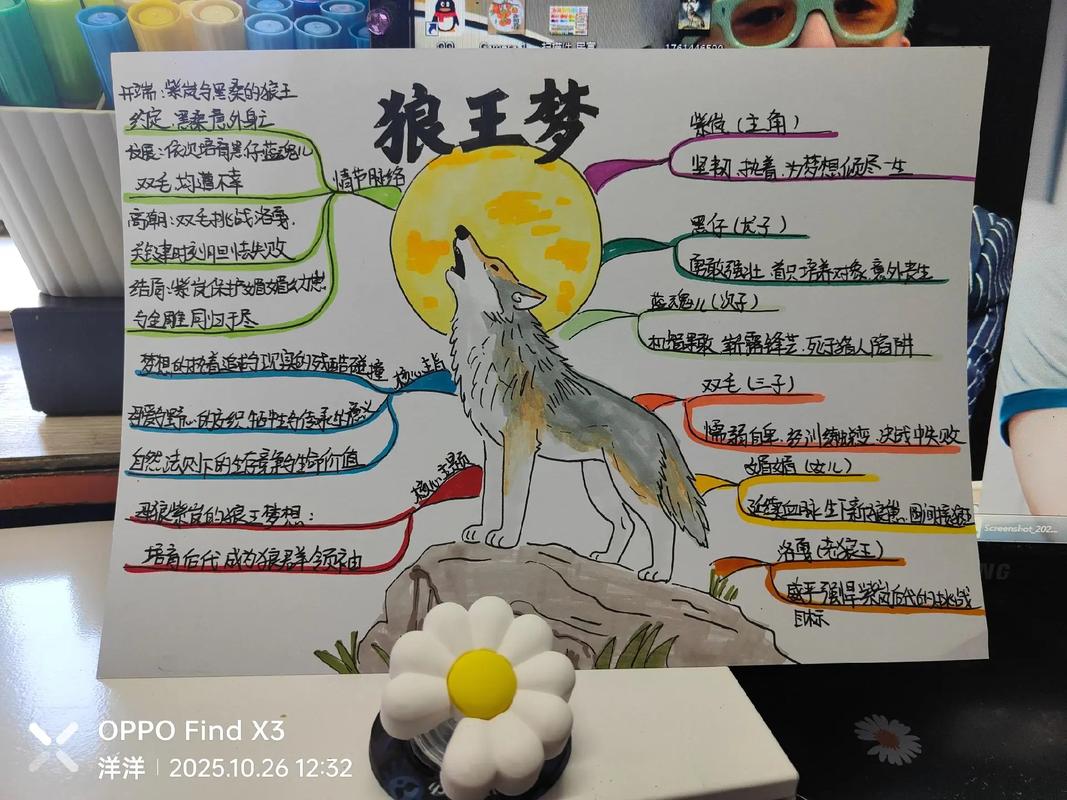 狼王梦
情节脉络
开端:紫岚与黑桑的狼王
约定,黑桑意外身亡
发展:依次培育黑仔蓝魂儿
双毛,均遭不幸
高潮:双毛挑战洛戛,
关键时刻胆怯失败
结局:紫岚保护媚媚幼崽
与金雕同归于尽
核心主旨
梦想的执着追求与现实的残酷碰撞
母爱与野心的交织,牺牲与传承的意义
自然法则下的生存竞争与生命价值
核心主题
母狼紫岚的狼王梦想:
培育后代成为狼群领袖
紫岚(主角)
坚韧、执着,为梦想倾尽一生
黑仔(长子)
勇敢强壮,首只培养对象,意外丧生
蓝魂儿(次子)
机智果敢,崭露锋芒,死于猎人陷阱
双毛(三子)
懦弱自卑,经训练蜕变,决战中失败
媚媚(女儿)
延续血脉,生下新狼崽,
洛戛(老狼王)
威严强悍,紫岚后代的挑战
目标
Screenshot_202...
1761446500
OPPO Find X3
洋洋 | 2025.10.26 12:32